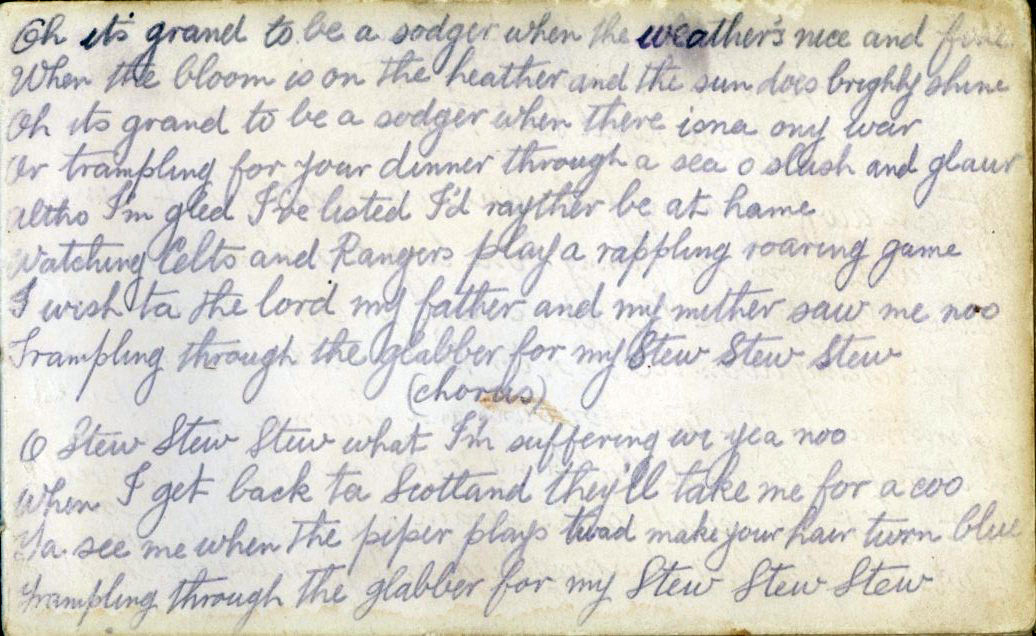 Oh its grand to be a sodger when the weather's nice and fine
When the bloom is on the heather and the sun does brighly shine
Oh its grand to be a sodger when there isna ony war
Or trampling for your dinner through a sea o slush and glaur
altho I'm gled I've listed I'd rayther be at hame
Watching Celts and Rangers play a rappling roaring game
I wish ta the lord my father and my mither saw me noo
Trampling through the glabber for my Stew Stew Stew
(chorus)
O Stew Stew Stew what I'm suffering wi yea noo
When I get back ta Scotland they'll take me for a coo
Ya see me when the piper plays twad make your hair turn blue
Trampling through the glabber for my Stew Stew Stew